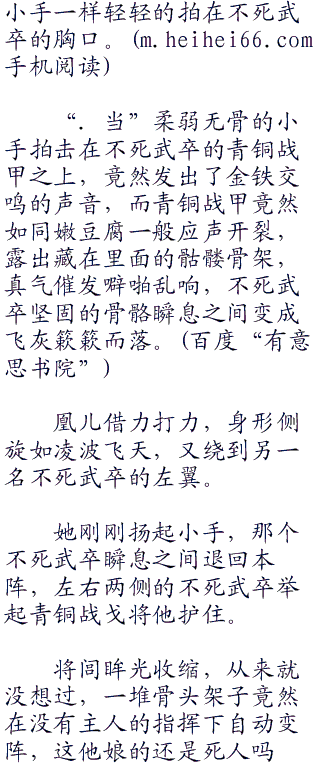 小手一样轻轻的拍在不死武
卒的胸口。(m.heihei66.com
手机阅读)
“．当”柔弱无骨的小
手拍击在不死武卒的青铜战
甲之上，竟然发出了金铁交
鸣的声音，而青铜战甲竟然
如同嫩豆腐一般应声开裂，
露出藏在里面的骷髅骨架，
真气催发噼啪乱响，不死武
卒坚固的骨骼瞬息之间变成
飞灰簌簌而落。(百度“有意
思书院”)
凰儿借力打力，身形侧
旋如凌波飞天，又绕到另一
名不死武卒的左翼。
她刚刚扬起小手，那个
不死武卒瞬息之间退回本
阵，左右两侧的不死武卒举
起青铜战戈将他护住。
将闾眸光收缩，从来就
没想过，一堆骨头架子竟然
在没有主人的指挥下自动变
阵，这他娘的还是死人吗